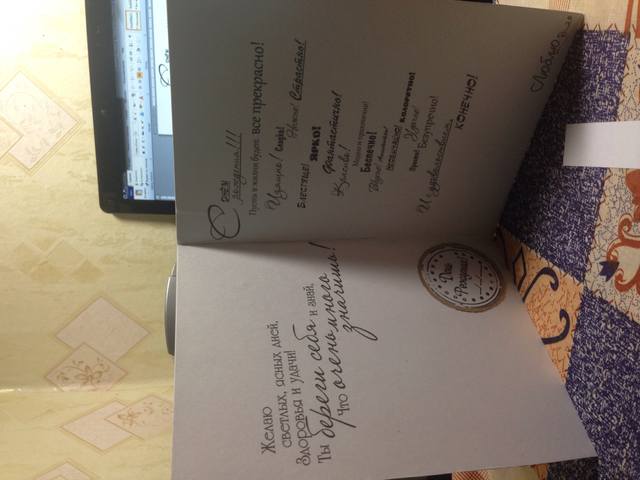 Желаю
светлых, ясных дней,
Здоровья и удачи!
Ты береги себя и знай,
Что очень много
значишь!
День
Рождения!
С днём
рождения!!!
Пусть в жизни будет все прекрасно!
Изящно! Сладко!
Нежно! Страстно!
Блестяще!
ЯРКО!
Фантастично!
Красиво!
Модно и практично!
Беспечно!
Вкусно!
Необычайно! колоритно!
Удачно!
Безупречно!
И с удовольствием,
КОНЕЧНО!
Люблю